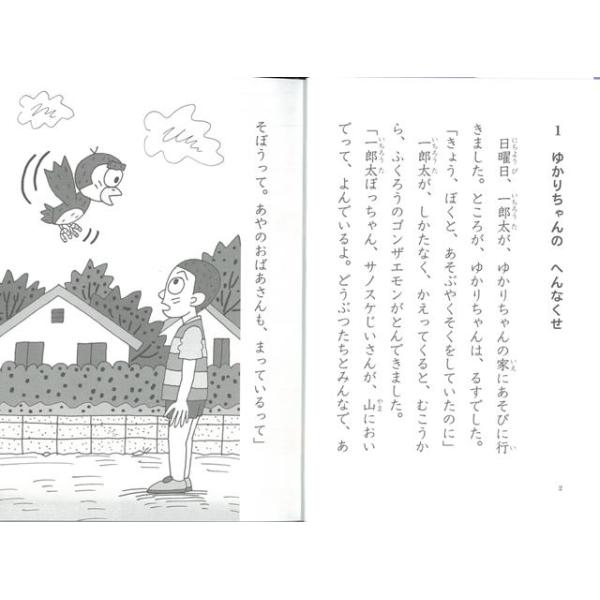 1 ゆかりちゃんの へんなくせ
日曜日、一郎太が、ゆかりちゃんの家にあそびに行
きました。ところが、ゆかりちゃんは、るすでした。
「きょう、ぼくと、あそぶやくそくをしていたのに」
一郎太が、しかたなく、かえってくると、むこうか
ら、ふくろうのゴンザエモンがとんできました。
「一郎太ぼっちゃん、サノスケじいさんが、山におい
でって、よんでいるよ。どうぶつたちとみんなで、あ
2
そぼうって。あやのおばあさんも、まっているって」